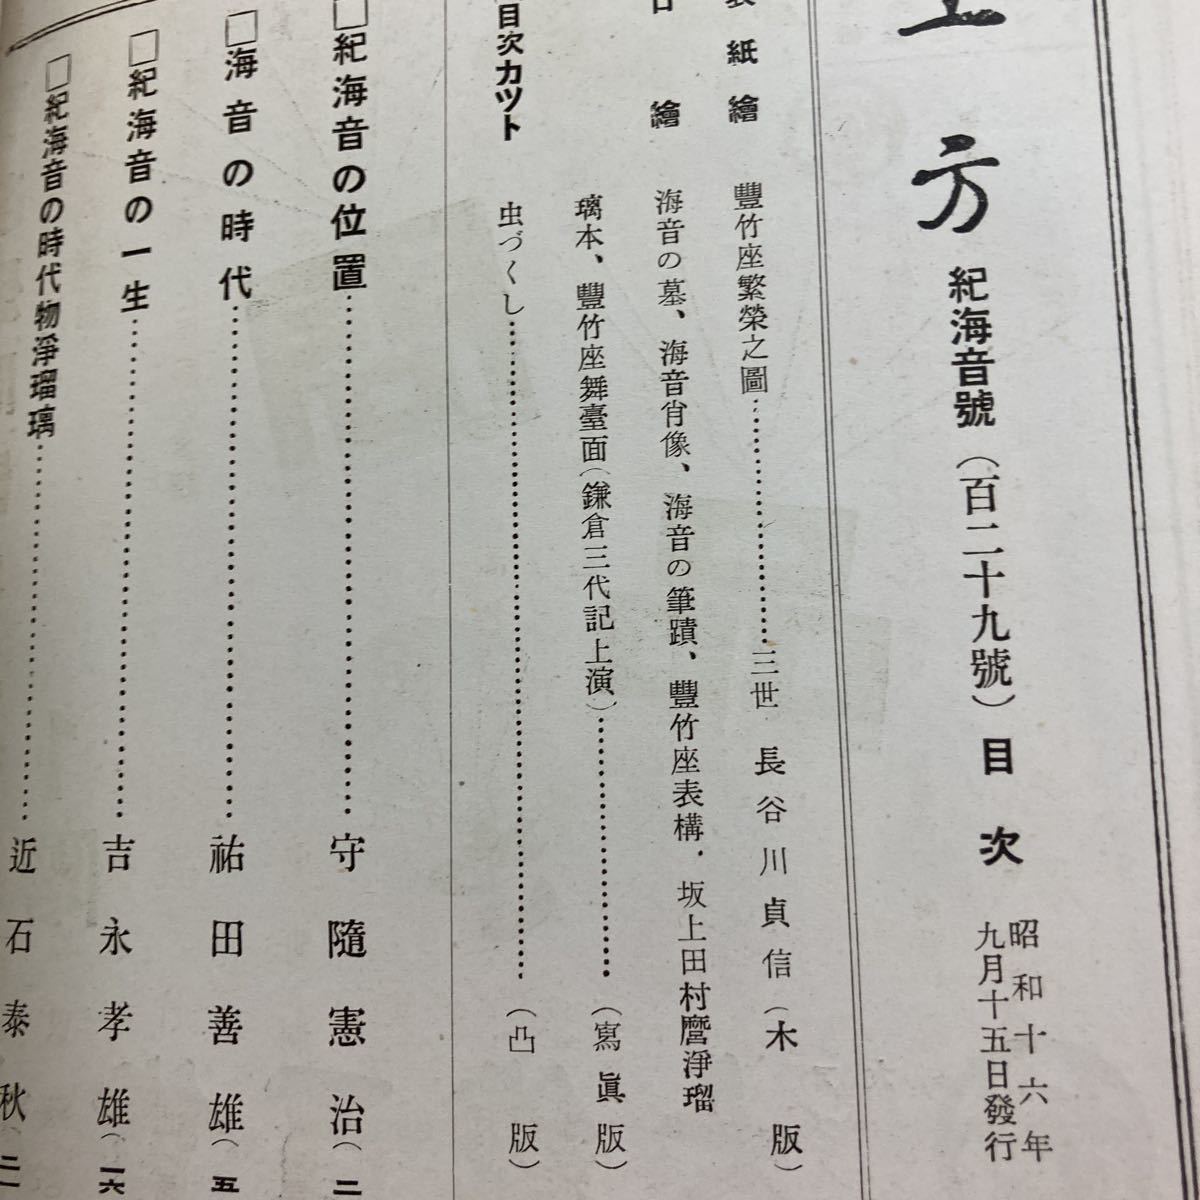 上方 紀海音號(百二十九號)目次 昭和十六年九月十五日發行
表紙繪 豐竹座繁榮之圖……三世 長谷川貞信(木版)
口繪 海音の墓、海音肖像、海音の筆蹟、豐竹座表構、坂上田村麿淨瑠
璃本、豐竹座舞臺面(鎌倉三代記上演)……(寫眞版)
目次カツト 虫づくし……(凸版)
□紀海音の位置……守隨憲治(二
□海音の時代……祐田善雄(五
□紀海音の一生……吉永孝雄(一六
□紀海音の時代物淨瑠璃……近石泰秋(二